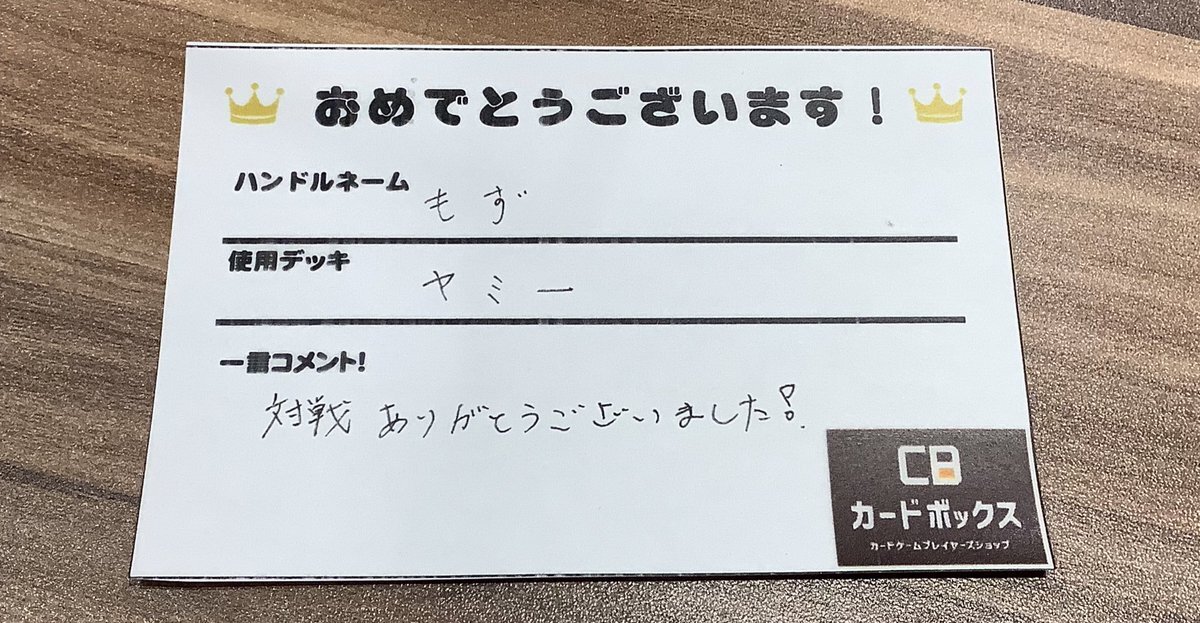 おめでとうございます！
ハンドルネーム
もず
使用デッキ
ヤミー
一言コメント!
対戦 ありがとうございました!
CB
カードボックス
カードゲームプレイヤーズショップ